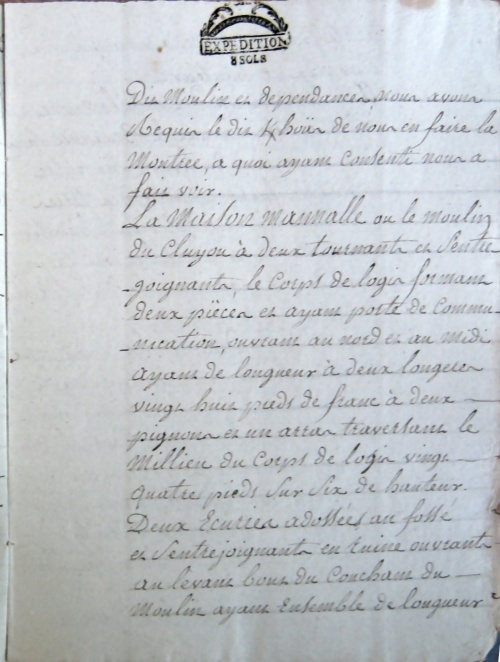 EXPEDITION
8 SOLS
Dit Moulin et dependances nous avons
Requis le dit l'hoür de nous en faire la
Montrée, a quoi ayant Consenti nous a
fait voir.
La Maison Mannalle ou le moulin
du Cluyou à deux tournants et Sentre
-goignants, le Corps de logis formant
deux pïèces et ayant porte de Commu-
-nication, ouvrant au nord et au midi
ayant de longueur à deux longeres
vingt huit pieds de franc à deux
pignons et un atras traversant le
Millieu du Corps de logis vingt
quatre pieds sur six de hauteur.
Deux Ecuries adossées au fossé
et Sentrejoignants en Ruine ouvrants
au levant bout du Couchant du
Moulin ayant Ensemble de longueur